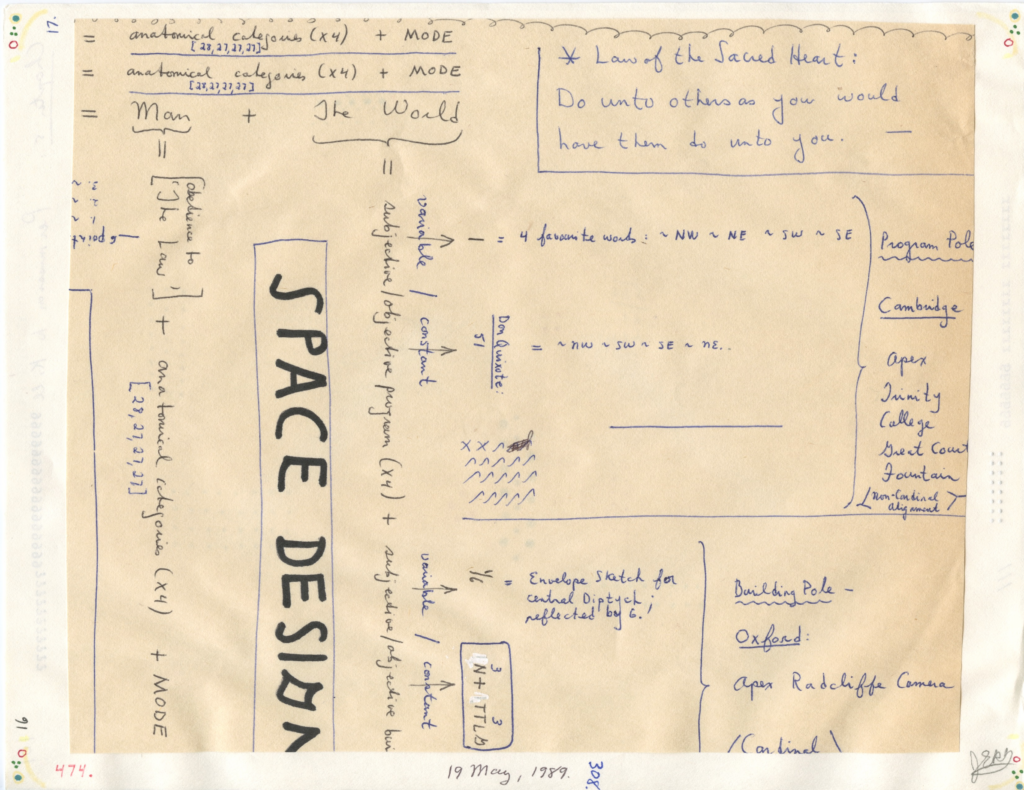 17.
= anatomical categories (x4) + MODE
[28,27,27,27]
= anatomical categories (x4) + MODE
[28,27,27,27]
= Man + The World
* Law of the Sacred Heart:
Do unto others as you would
have them do unto you. —
= [obedience to
'The Law'] + anatomical categories (x4) + MODE
[28,27,27,27]
6 point
SPACE DESIGN
= subjective/objective program (x4) + subjective/objective bui
variable / constant
1 = 4 favourite words: ~ NW ~ NE ~ SW ~ SE
Don Quixote:
51 = ~ NW ~ SW ~ SE ~ NE..
x x
Program Pole
Cambridge
Apex
Trinity
College
Great Court
Fountain
(Non-Cardinal
alignment)
variable / constant
1/6 = Envelope Sketch for
central Diptych;
reflected by 6.
Building Pole -
Oxford:
Apex Radcliffe Camera
(Cardinal)
91
474.
19 May, 1989.
308.